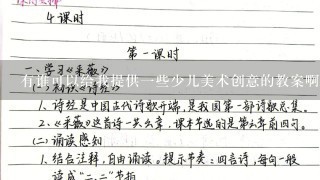 课时安排
4课时
第一课时
一、学习《采薇》
有谁可以给我提供一些少儿美术创意的教案啊
(一)初识《诗经》
1、诗经是中国古代诗歌开端,是我国第一部诗歌总集。
2、《采薇》这首诗一共六章,课本节选的是第六章前四句。
(二)诵读感知
1、结合注释,自由诵读。提示节奏:四言诗,每句一般
读成“二、二”节拍